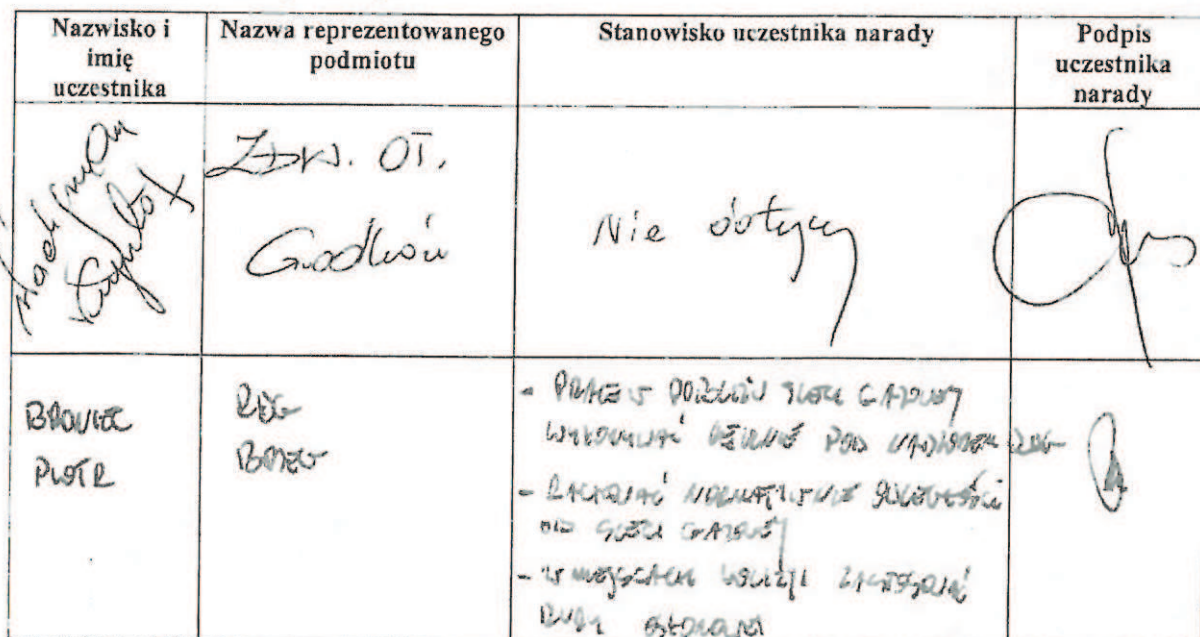 Nazwisko i
imię
uczestnika
Nazwa reprezentowanego
podmiotu
Stanowisko uczestnika narady
Podpis
uczestnika
narady
OT.
Nie dotyczy
BROWIEC
PIOTR
RDG
BRZEG
- PRACE W POBLIŻU SIECI GAZOWEJ
WYKONYWAĆ RĘCZNIE POD NADZOREM RDG
- ZACHOWAĆ NORMATYWNE ODLEGŁOŚCI
OD SIECI GAZOWEJ
- W MIEJSCACH KOLIZJI ZASTOSOWAĆ
RURY